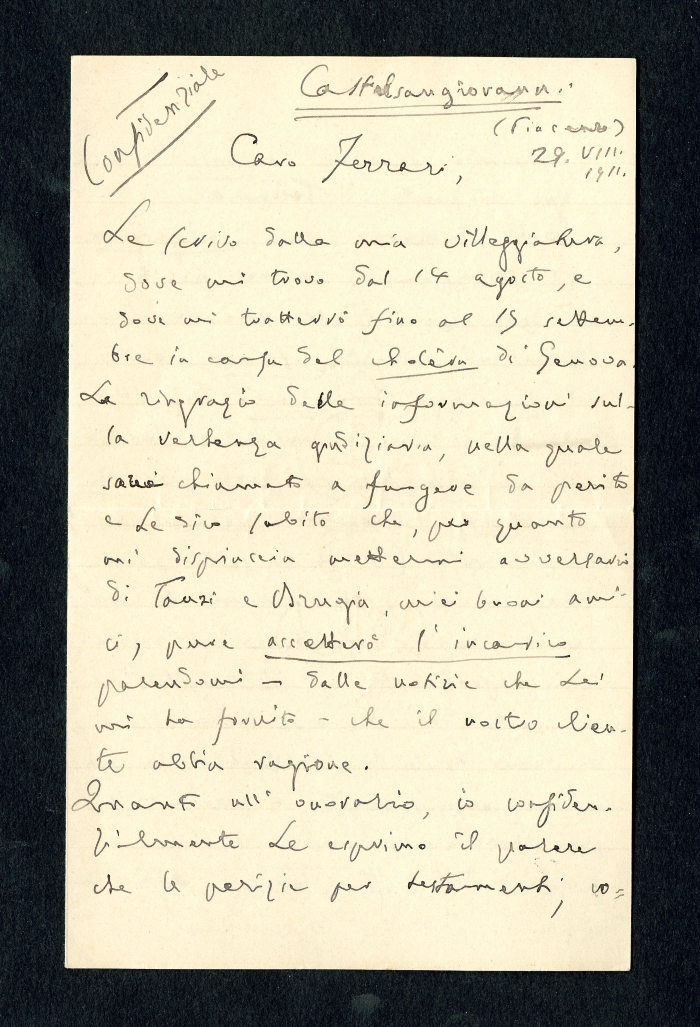 Confidenziale
Castelsangiovanni
(Piacenza)
29. VIII.
1911.
Caro Ferrari,
Le scrivo dalla mia villeggiatura,
dove mi trovo dal 14 agosto, e
dove mi tratterrò fino al 15 settem-
bre in causa del choléra di Genova.
La ringrazio delle informazioni sul-
la vertenza giudiziaria, nella quale
sarei chiamato a fungere da perito
e Le dico subito che, per quanto
mi dispiaccia mettermi avversario
di Tanzi e Brugia, miei buoni ami-
ci, pure accetterò l'incarico
parendomi – dalle notizie che Lei
mi ha fornito – che il nostro clien-
te abbia ragione.
Quanto all'onorario, io confiden-
zialmente Le esprimo il parere
che le perizie per testamenti, co=